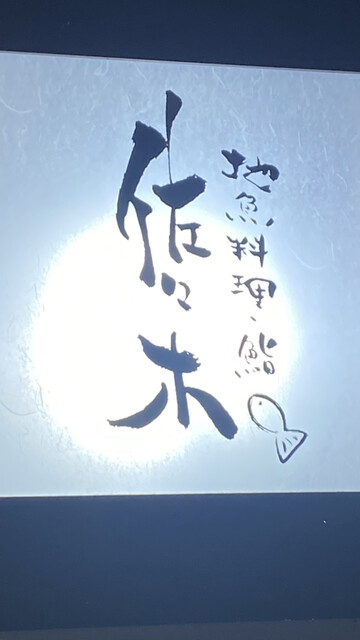 地魚料理、鮨
佐々木